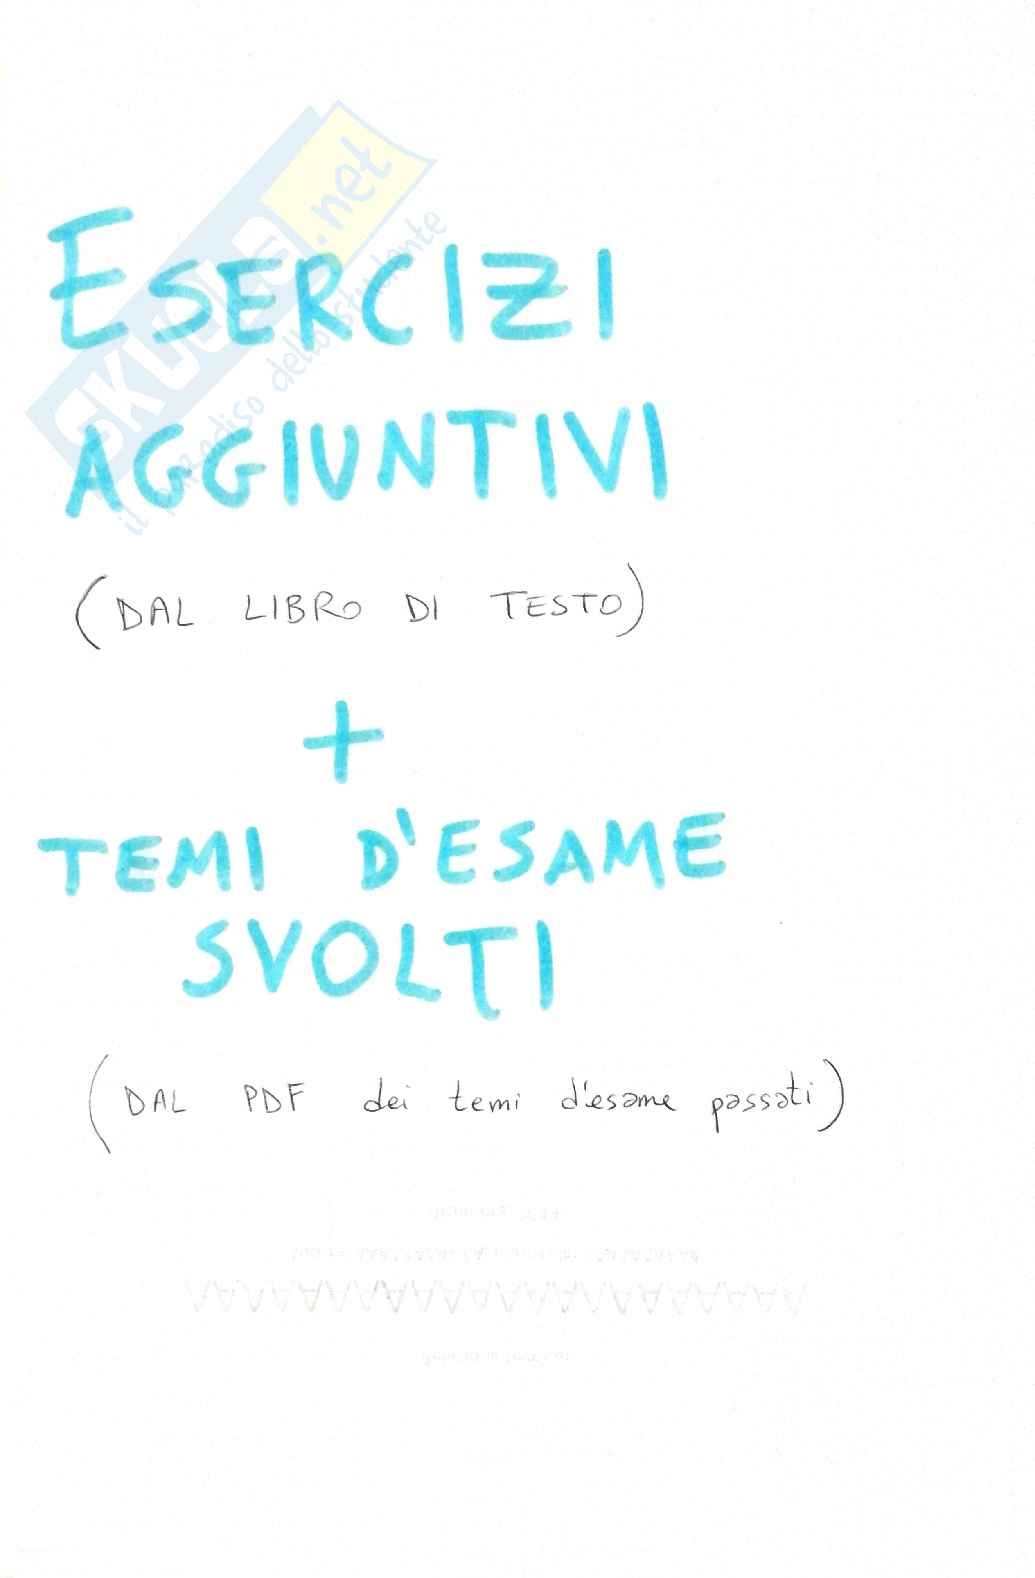 SKUOLA.net
il paradiso dello studente
ESERCIZI
AGGIUNTIVI
(DAL LIBRO DI TESTO)
+
TEMI D'ESAME
SVOLTI
(DAL PDF dei temi d'esame passati)